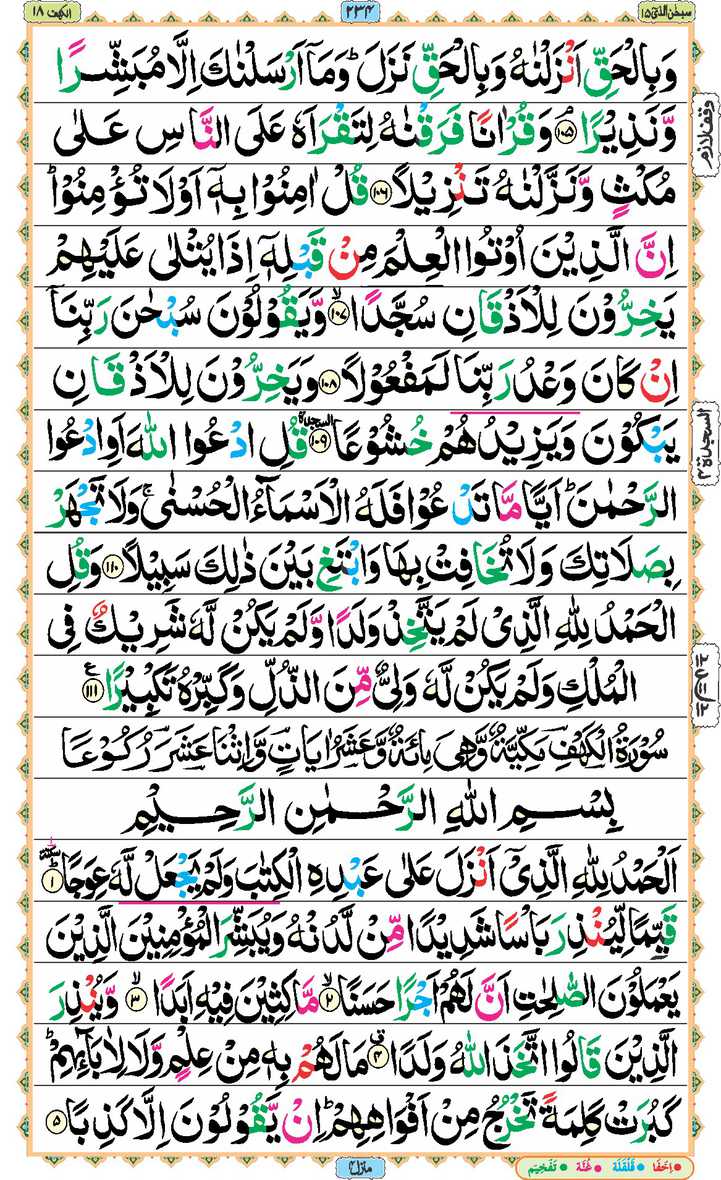 سبحٰن الذیٓ ۱۵
۲۳۴
الکہف ۱۸
وَبِالْحَقِّ اَنْزَلْنٰهُ وَبِالْحَقِّ نَزَلَ ؕ وَمَاۤ اَرْسَلْنٰكَ اِلَّا مُبَشِّرًا
وَّنَذِيْرًا ۘ‏﴿۱۰۵﴾ وَقُرْاٰنًا فَرَقْنٰهُ لِتَقْرَاَهٗ عَلَى النَّاسِ عَلٰى
مُكْثٍ وَّنَزَّلْنٰهُ تَنْزِيْلًا ﴿۱۰۶﴾ قُلْ اٰمِنُوْا بِهٖۤ اَوْ لَا تُؤْمِنُوْا ؕ
اِنَّ الَّذِيْنَ اُوْتُوا الْعِلْمَ مِنْ قَبْلِهٖۤ اِذَا يُتْلٰى عَلَيْهِمْ
يَخِرُّوْنَ لِلْاَذْقَانِ سُجَّدًا ۙ﴿۱۰۷﴾ وَّيَقُوْلُوْنَ سُبْحٰنَ رَبِّنَاۤ
اِنْ كَانَ وَعْدُ رَبِّنَا لَمَفْعُوْلًا ﴿۱۰۸﴾ وَيَخِرُّوْنَ لِلْاَذْقَانِ
يَبْكُوْنَ وَيَزِيْدُهُمْ خُشُوْعًا ۩ السجدة ﴿۱۰۹﴾ قُلِ ادْعُوا اللّٰهَ اَوِ ادْعُوا
الرَّحْمٰنَ ؕ اَيًّا مَّا تَدْعُوْا فَلَهُ الْاَسْمَآءُ الْحُسْنٰى ۚ وَلَا تَجْهَرْ
بِصَلَاتِكَ وَلَا تُخَافِتْ بِهَا وَابْتَغِ بَيْنَ ذٰلِكَ سَبِيْلًا ﴿۱۱۰﴾ وَقُلِ
الْحَمْدُ لِلّٰهِ الَّذِىْ لَمْ يَتَّخِذْ وَلَدًا وَّلَمْ يَكُنْ لَّهٗ شَرِيْكٌ فِى
الْمُلْكِ وَلَمْ يَكُنْ لَّهٗ وَلِىٌّ مِّنَ الذُّلِّ وَكَبِّرْهُ تَكْبِيْرًا ﴿۱۱۱﴾ ع
سُوْرَةُ الْكَهْفِ مَكِّيَّةٌ وَّهِىَ مِائَةٌ وَّعَشْرُ اٰيَاتٍ وَّاثْنَا عَشَرَ رُكُوْعًا
بِسْمِ اللّٰهِ الرَّحْمٰنِ الرَّحِيْمِ
اَلْحَمْدُ لِلّٰهِ الَّذِىْۤ اَنْزَلَ عَلٰى عَبْدِهِ الْكِتٰبَ وَلَمْ يَجْعَلْ لَّهٗ عِوَجًا ؕ سكتة ﴿۱﴾
قَيِّمًا لِّيُنْذِرَ بَاْسًا شَدِيْدًا مِّنْ لَّدُنْهُ وَيُبَشِّرَ الْمُؤْمِنِيْنَ الَّذِيْنَ
يَعْمَلُوْنَ الصّٰلِحٰتِ اَنَّ لَهُمْ اَجْرًا حَسَنًا ۙ﴿۲﴾ مَّاكِثِيْنَ فِيْهِ اَبَدًا ۙ﴿۳﴾ وَّيُنْذِرَ
الَّذِيْنَ قَالُوا اتَّخَذَ اللّٰهُ وَلَدًا ۗ﴿۴﴾ مَا لَهُمْ بِهٖ مِنْ عِلْمٍ وَّلَا لِاٰبَآئِهِمْ ؕ
كَبُرَتْ كَلِمَةً تَخْرُجُ مِنْ اَفْوَاهِهِمْ ؕ اِنْ يَّقُوْلُوْنَ اِلَّا كَذِبًا ﴿۵﴾
وقف لازم
السجدة ۴
منزل ۴
اِخْفَا • قَلْقَلَة • غُنَّة • تَفْخِيْم